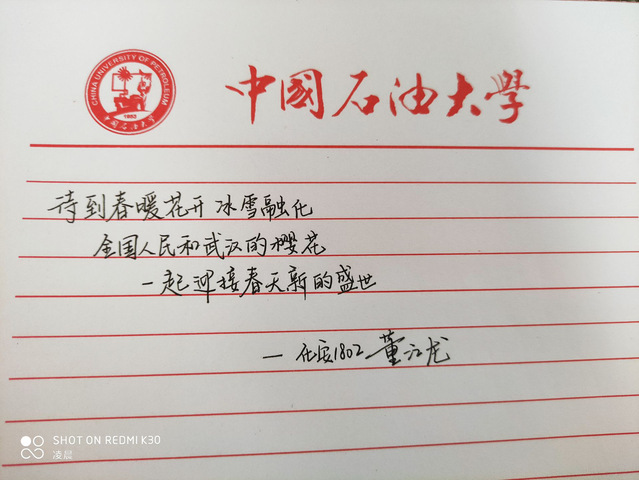 CHINA UNIVERSITY OF PETROLEUM
1953
中国石油大学
中國石油大學
待到春暖花开 冰雪融化
全国人民和武汉的樱花
一起迎接春天新的盛世
— 化安1802 董江龙
SHOT ON REDMI K30
凌晨